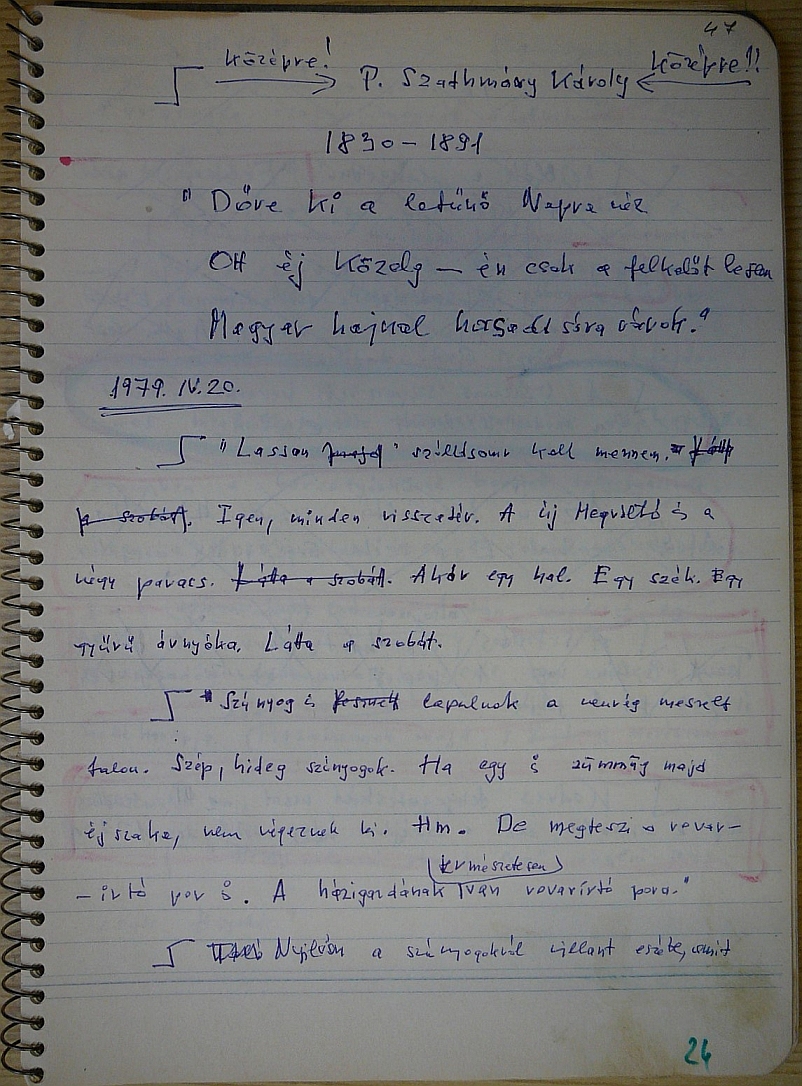 47
középre! P. Szathmáry Károly középre!!
1830 – 1891
"Dőre ki a letűnő Napra néz
Ott éj közelg – én csak a felkelőt lesem
Magyar hajnal hasadására várok."
1979. IV. 20.
"Lassan majd" szállásomr kell mennem.
a szobát. Igen, minden visszatér. A új Megváltó is a
négy paraszt. Látta a szobát. Akár egy hal. Egy szék. Egy
gyűrű árnyéka. Látta a szobát.
"Szúnyog is lapulnak a nemrég meszelt
falon. Szép, hideg szúnyogok. Ha egy is zümmög majd
éjszaka, nem végeznek ki. Hm. De megteszi a rovar-
(természetesen)
-irtó por is. A házigazdának van rovarirtó pora."
Nyilván a szúnyogokról villant eszébe, amit
24